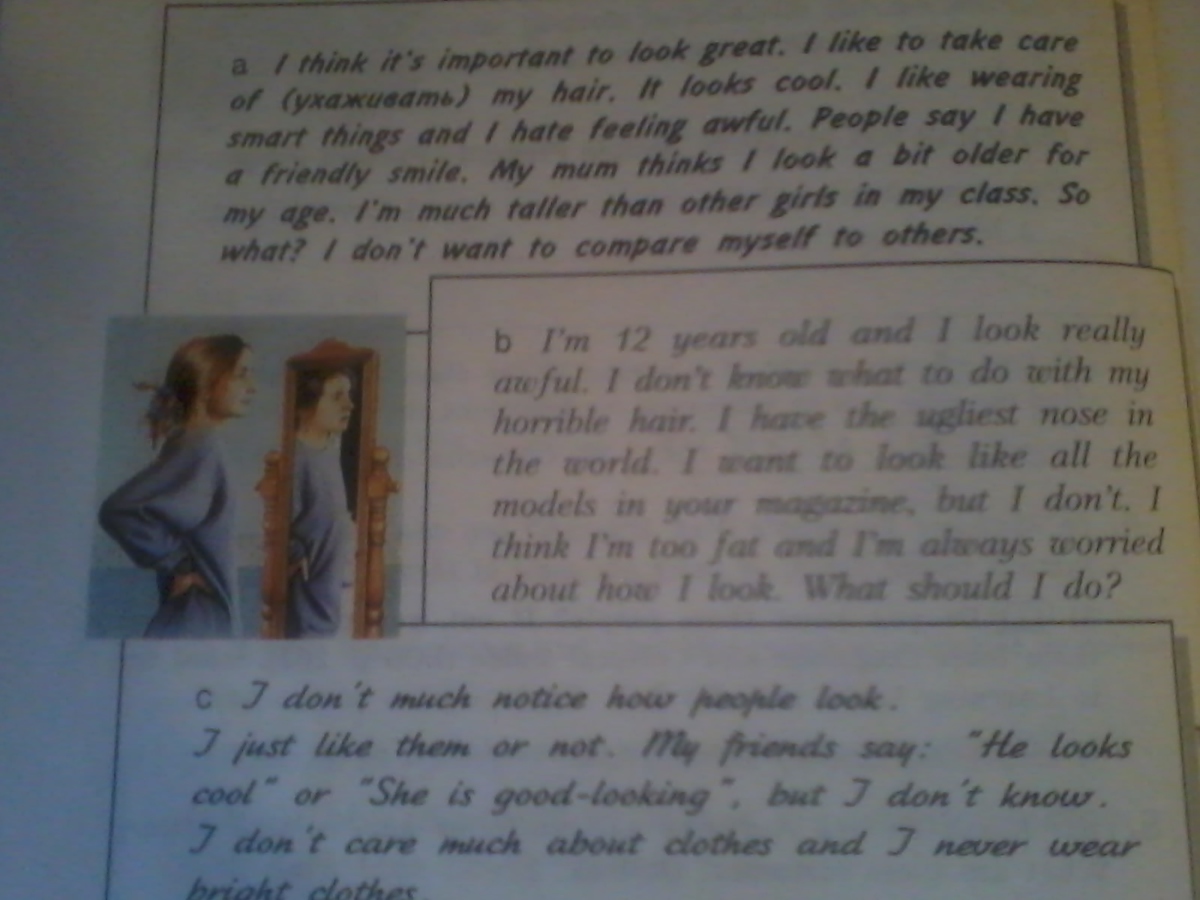 a I think it's important to look great. I like to take care
of (ухаживать) my hair. It looks cool. I like wearing
smart things and I hate feeling awful. People say I have
a friendly smile. My mum thinks I look a bit older for
my age. I'm much taller than other girls in my class. So
what? I don't want to compare myself to others.
b I'm 12 years old and I look really
awful. I don't know what to do with my
horrible hair. I have the ugliest nose in
the world. I want to look like all the
models in your magazine, but I don't. I
think I'm too fat and I'm always worried
about how I look. What should I do?
c I don't much notice how people look.
I just like them or not. My friends say: "He looks
cool" or "She is good-looking", but I don't know.
I don't care much about clothes and I never wear
bright clothes.